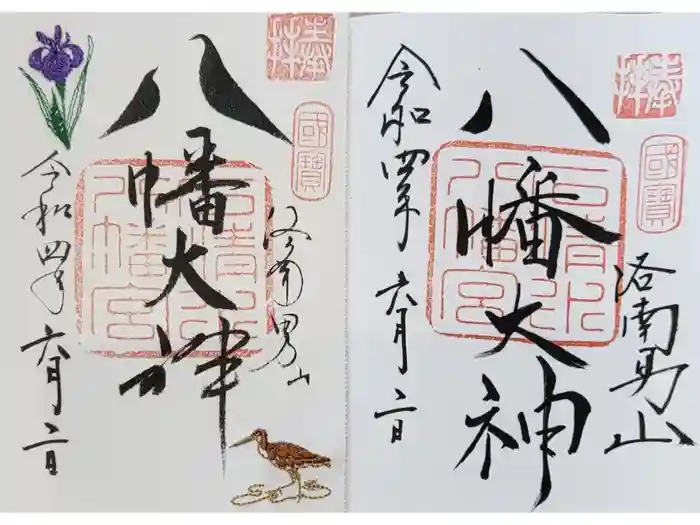 奉拝
國寳
洛南男山
八幡大神
石清水八幡宮
令和四年六月二日
奉拝
國寳
洛南男山
八幡大神
石清水八幡宮
令和四年六月二日